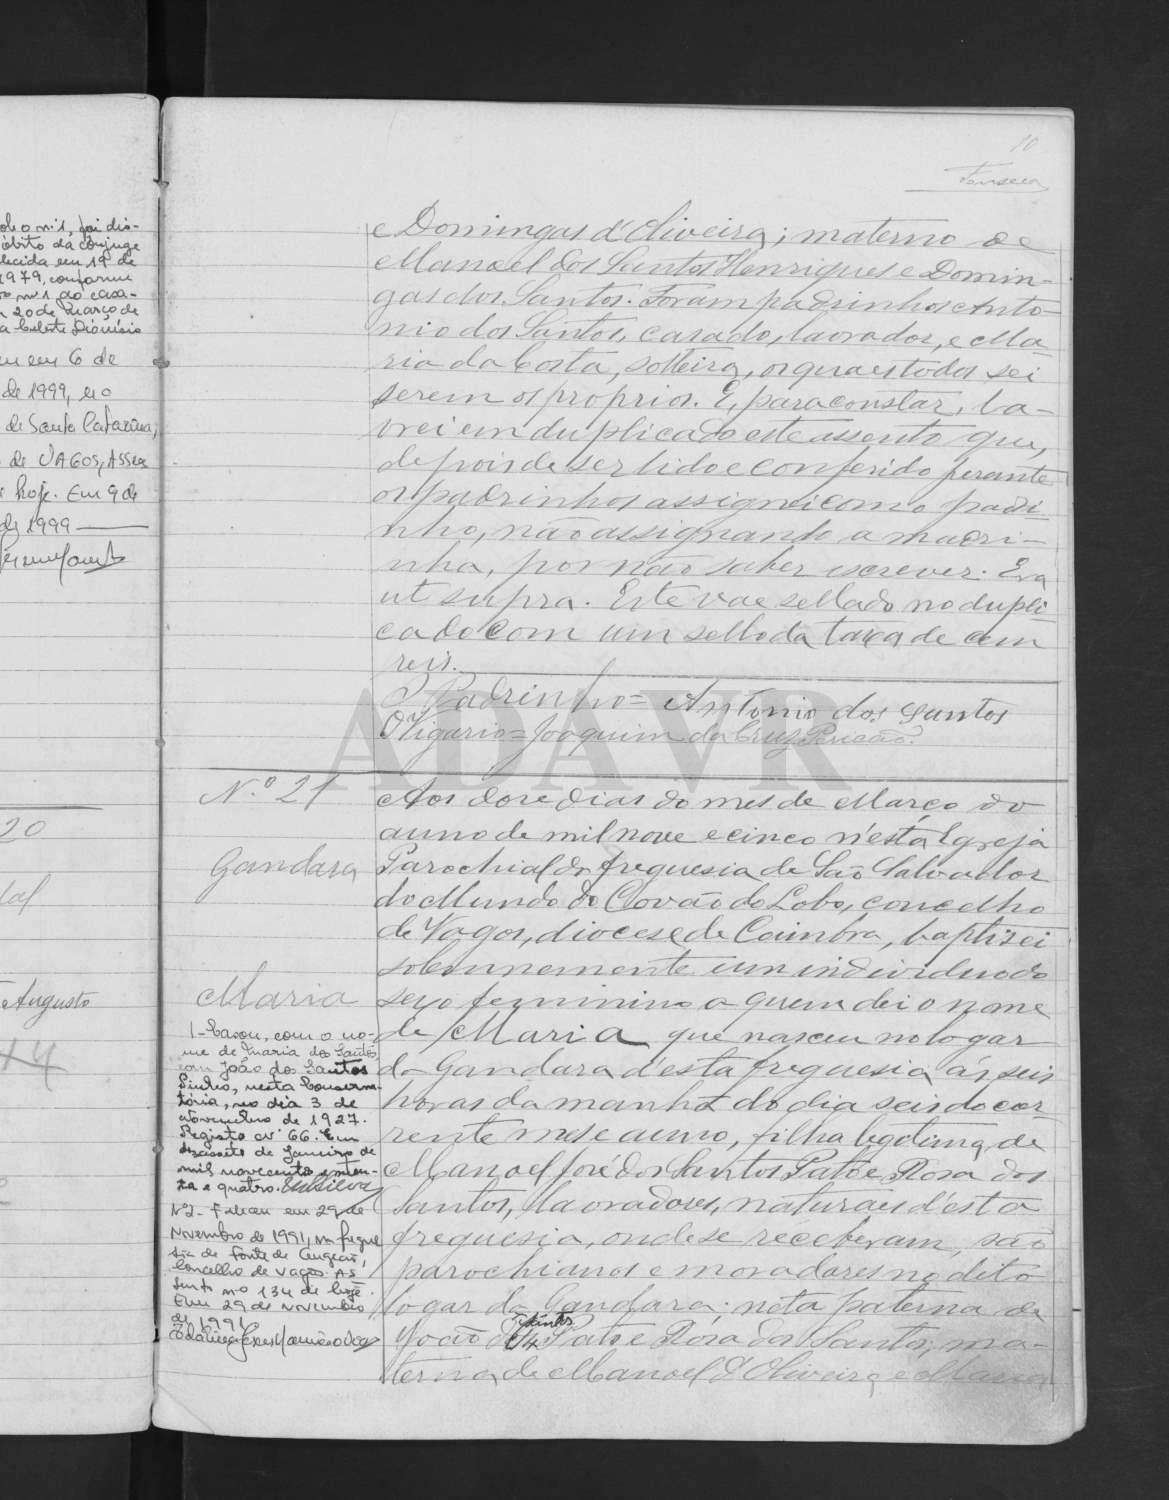 10
Fonseca
e Domingas d'Oliveira; materno de
Manoel dos Santos Henriques e Domin-
gas dos Santos. Foram padrinhos Anto-
nio dos Santos, casado, lavrador, e Ma-
ria da Costa, solteira, os quaes todos sei
serem os proprios. E, para constar, la-
vrei em duplicado este assento que,
depois de ser lido e conferido perante
os padrinhos assignei com o padri-
nho, não assignando a madri-
nha, por não saber escrever. Era
ut supra. Este vae sellado no dupli-
cado com um sello da taxa de cem
reis.
O Padrinho = Antonio dos Santos
O Vigario = Joaquim da Cruz Pericão.
N.º 21
Gandara
Maria
Aos doze dias do mes de Março do
anno de mil nove e cinco n'esta Egreja
Parochial da freguesia de São Salvador
do Mundo do Covão do Lobo, concelho
de Vagos, diocese de Coimbra, baptisei
solemnemente um individuo do
sexo feminino a quem dei o nome
de Maria que nasceu no logar
da Gandara d'esta freguesia ás seis
horas da manhã do dia seis do cor
rente mes e anno, filha legitima de
Manoel José dos Santos Pato e Rosa dos
Santos, lavradores, naturaes d'esta
freguesia, onde se receberam, são
parochianos e moradores no dito
logar da Gandara; neta paterna de
João dos Santos Pato e Rosa dos Santos; ma-
terna de Manoel d'Oliveira e Maria
1- Casou, com o no-
me de Maria dos Santos,
com João dos Santos
Sinho, nesta Conserva-
tória, no dia 3 de
Novembro de 1927.
Registo nº 66. Em
dezassete de Janeiro de
mil novecentos e
ta e quatro.
Nº2- Faleceu em 29 de
Novembro de 1991, na fregue
sia de Fonte de Angeão,
Concelho de Vagos. As
sento nº 134 de hoje.
Em 29 de Novembro
de 1991
ob o nº 1, foi dis-
óbito da cônjuge
lecida em 19 de
1979, conforme
nº 1 do casa-
20 de Março de
em 6 de
de 1999, no
de Santa Catarina,
de VAGOS, Assen
hoje. Em 9 de
de 1999
20
Augusto
ADAVR